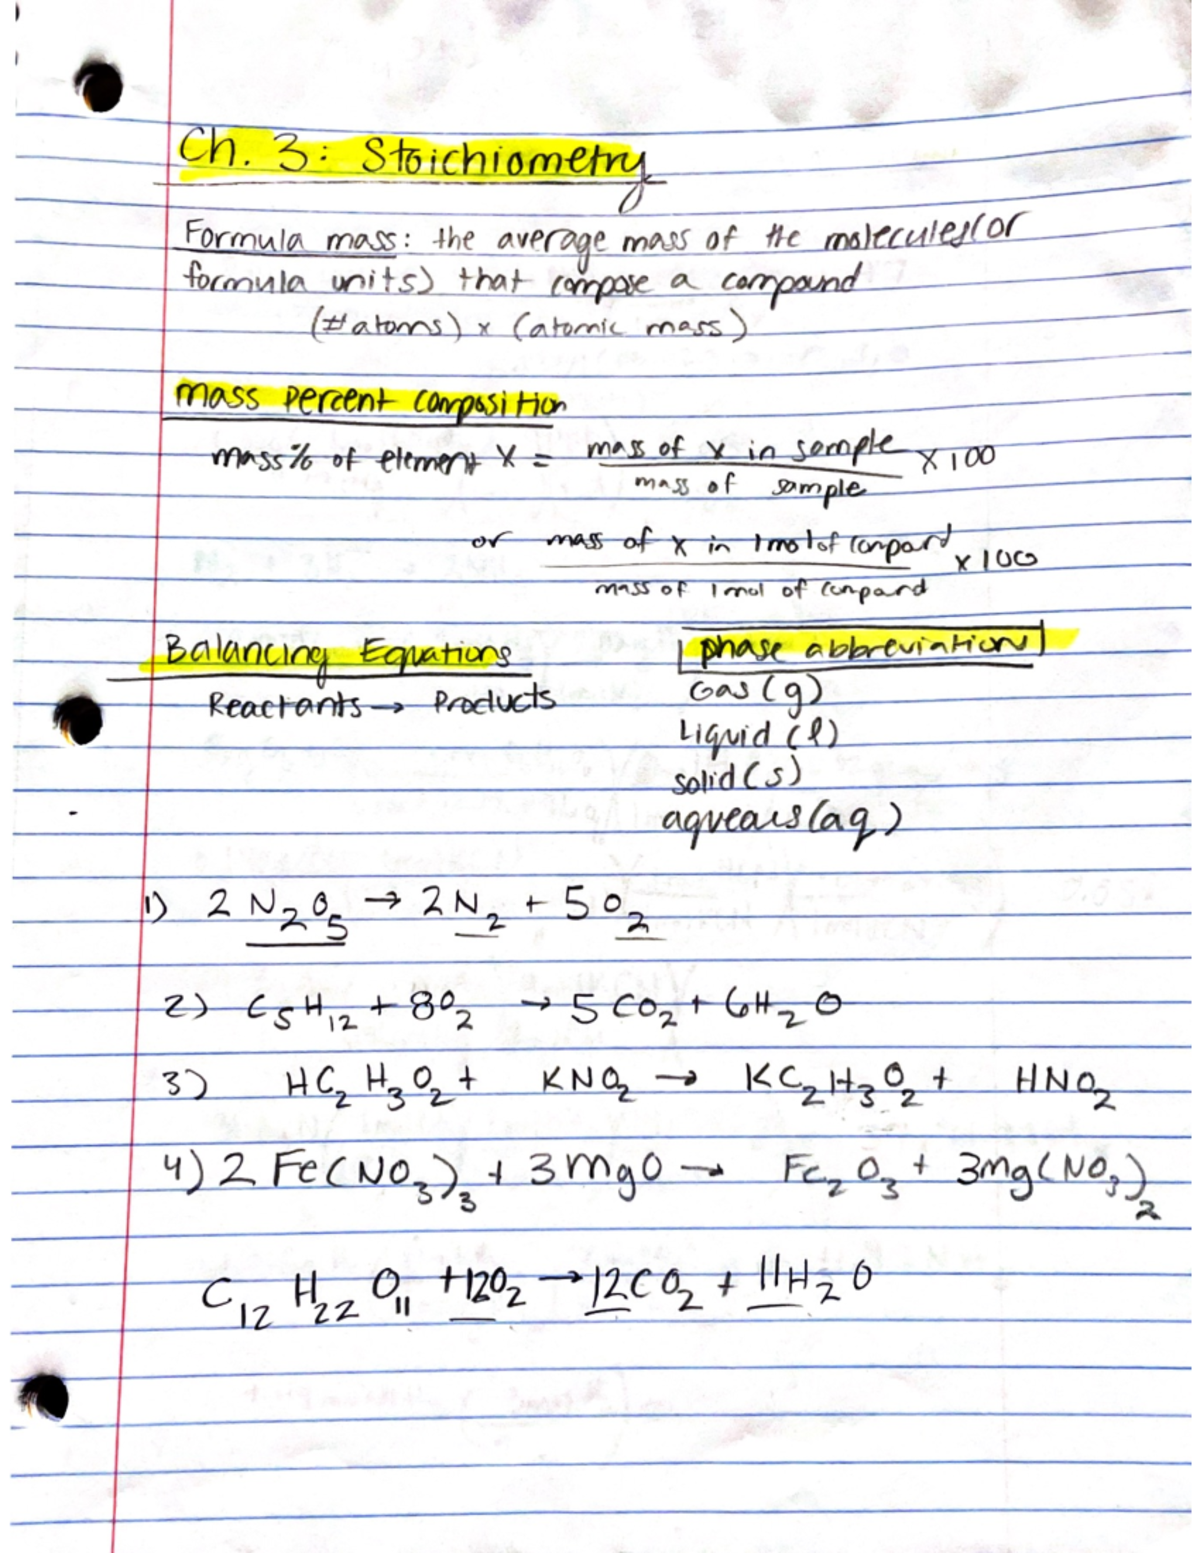 Ch. 3: Stoichiometry
Formula mass: the average mass of the molecules(or
formula units) that compose a compound
(#atoms) x (atomic mass)
mass percent composition
mass% of element X = mass of x in sample / mass of sample x 100
or mass of x in 1 mol of compond / mass of 1 mol of compond x 100
Balancing Equations
Reactants → Products
phase abbreviation
Gas (g)
Liquid (l)
solid (s)
aqueous (aq)
1) 2 N₂O₅ → 2 N₂ + 5 O₂
2) C₅H₁₂ + 8O₂ → 5 CO₂ + 6H₂O
3) HC₂H₃O₂ + KNO₂ → KC₂H₃O₂ + HNO₂
4) 2 Fe(NO₃)₃ + 3 MgO → Fe₂O₃ + 3mg(NO₃)₂
C₁₂H₂₂O₁₁ + 12O₂ → 12CO₂ + 11H₂O